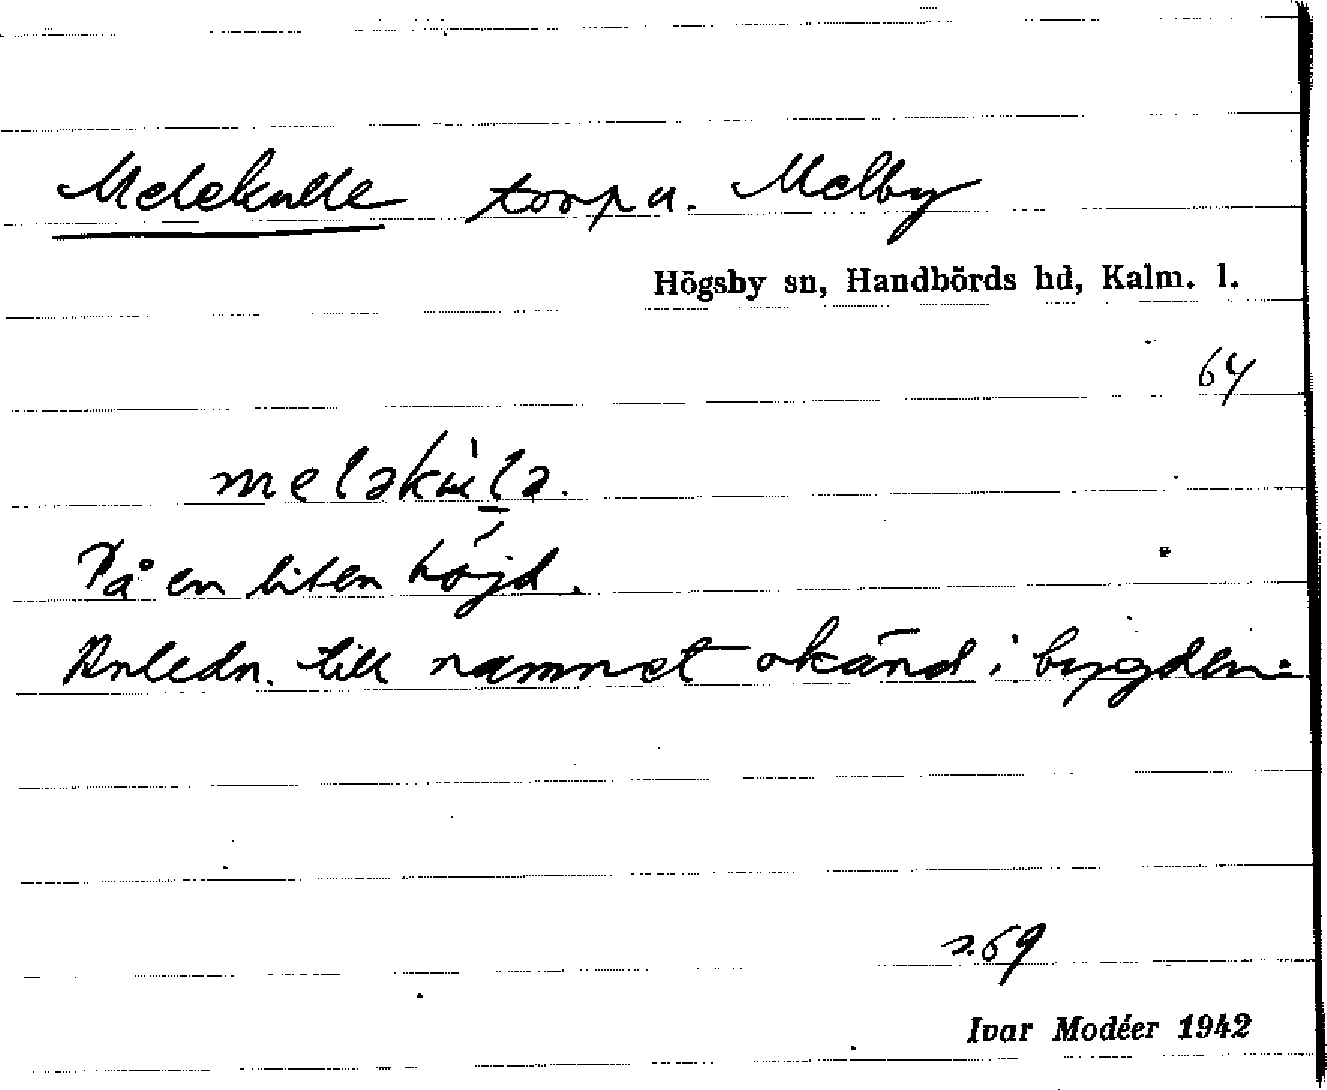 Melekulle torp u. Melby
Högsby sn, Handbörds hd, Kalm. l.
64
meləkùlə.
På en liten höjd.
Anledn. till namnet okänd i bygden.
s. 69
Ivar Modéer 1942